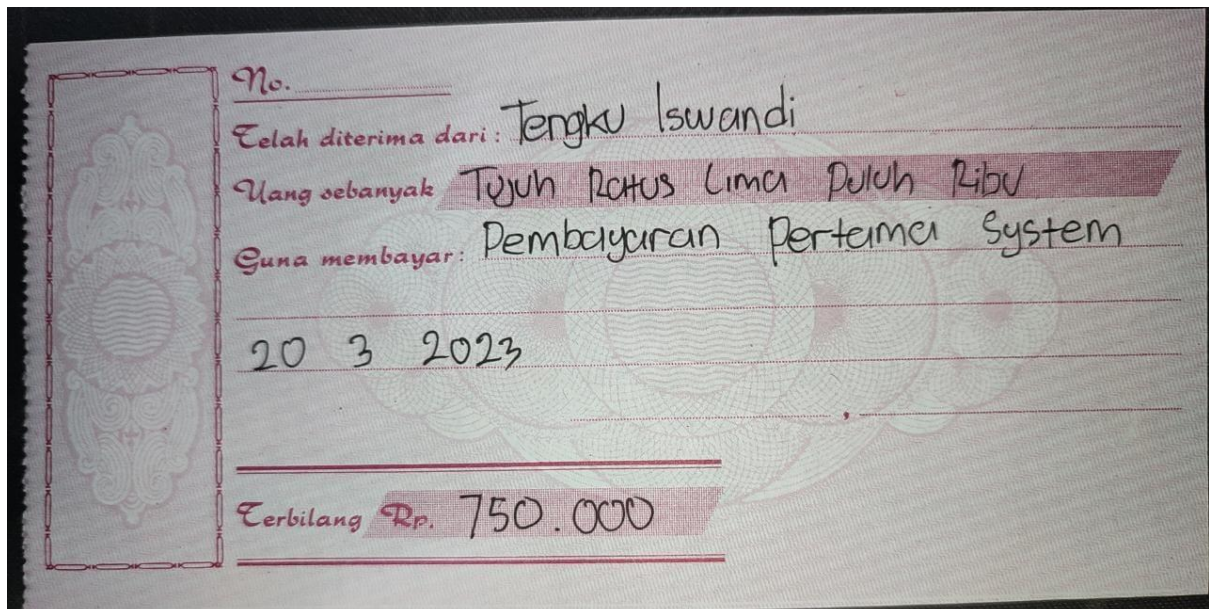 No.
Telah diterima dari: Tengku Iswandi
Uang sebanyak Tujuh Ratus Lima Puluh Ribu
Guna membayar: Pembayaran Pertama System
20 3 2023
,
Terbilang Rp. 750.000